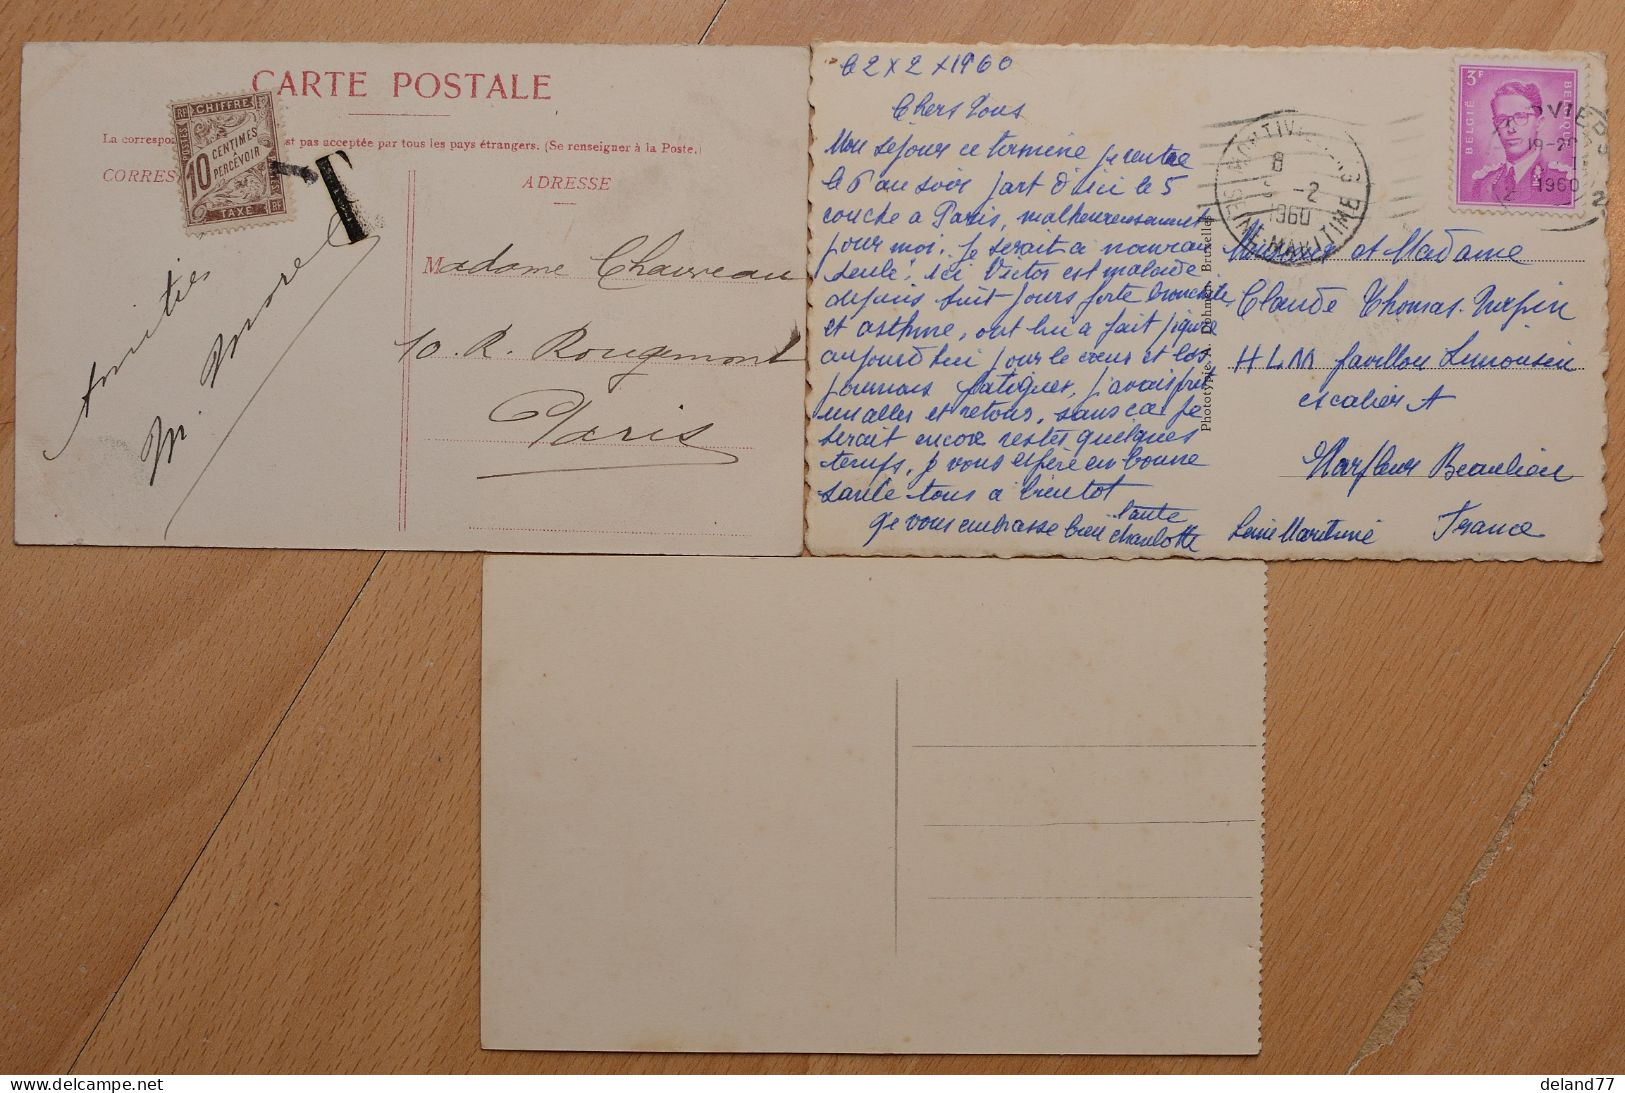 CARTE POSTALE
La correspo st pas acceptée par tous les pays étrangers. (Se renseigner à la Poste.)
CORRES
ADRESSE
RF CHIFFRE
POSTES
10 CENTIMES
PERCEVOIR
TAXE RF
T
Amitiés
M.
Madame Chauveau
10. R. Rougemont
Paris
le 2 x 2 x 1960
Chers Vous
Mon séjour ce termine je rentre
le 6 au soir part d'ici le 5
couche a Paris, malheureusement
pour moi. je serait a nouveau
seule! ici Victor est malade
depuis huit jours forte bronchite
et asthme, ont lui a fait piqure
aujourd'hui pour le cœur et les
poumons fatigues, j'avais pris
un aller et retour, sans ca je
serait encore restes quelques
temps, je vous espère en bonne
sante tous a bientot
je vous embrasse bien tante
charlotte
Phototypie A. Dohmen, Bruxelles
3F
BELGIË BELGIQUE
8
-2
1960
INE MARITIME
19-20
1960
Monsieur et Madame
Claude Thomas Turpin
HLM pavillon Limousin
escalier A
Harfleur Beaulieu
Seine Maritime France
deland77